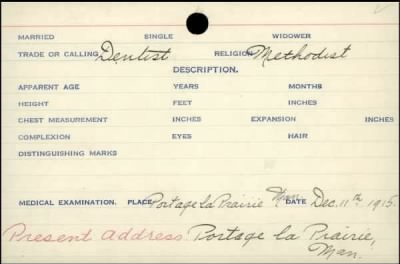 MARRIED SINGLE WIDOWER
TRADE OR CALLING Dentist RELIGION Methodist
DESCRIPTION.
APPARENT AGE YEARS MONTHS
HEIGHT FEET INCHES
CHEST MEASUREMENT INCHES EXPANSION INCHES
COMPLEXION EYES HAIR
DISTINGUISHING MARKS
MEDICAL EXAMINATION. PLACE Portage la Prairie Man DATE Dec. 11th 1915.
Present Address. Portage la Prairie,
Man.